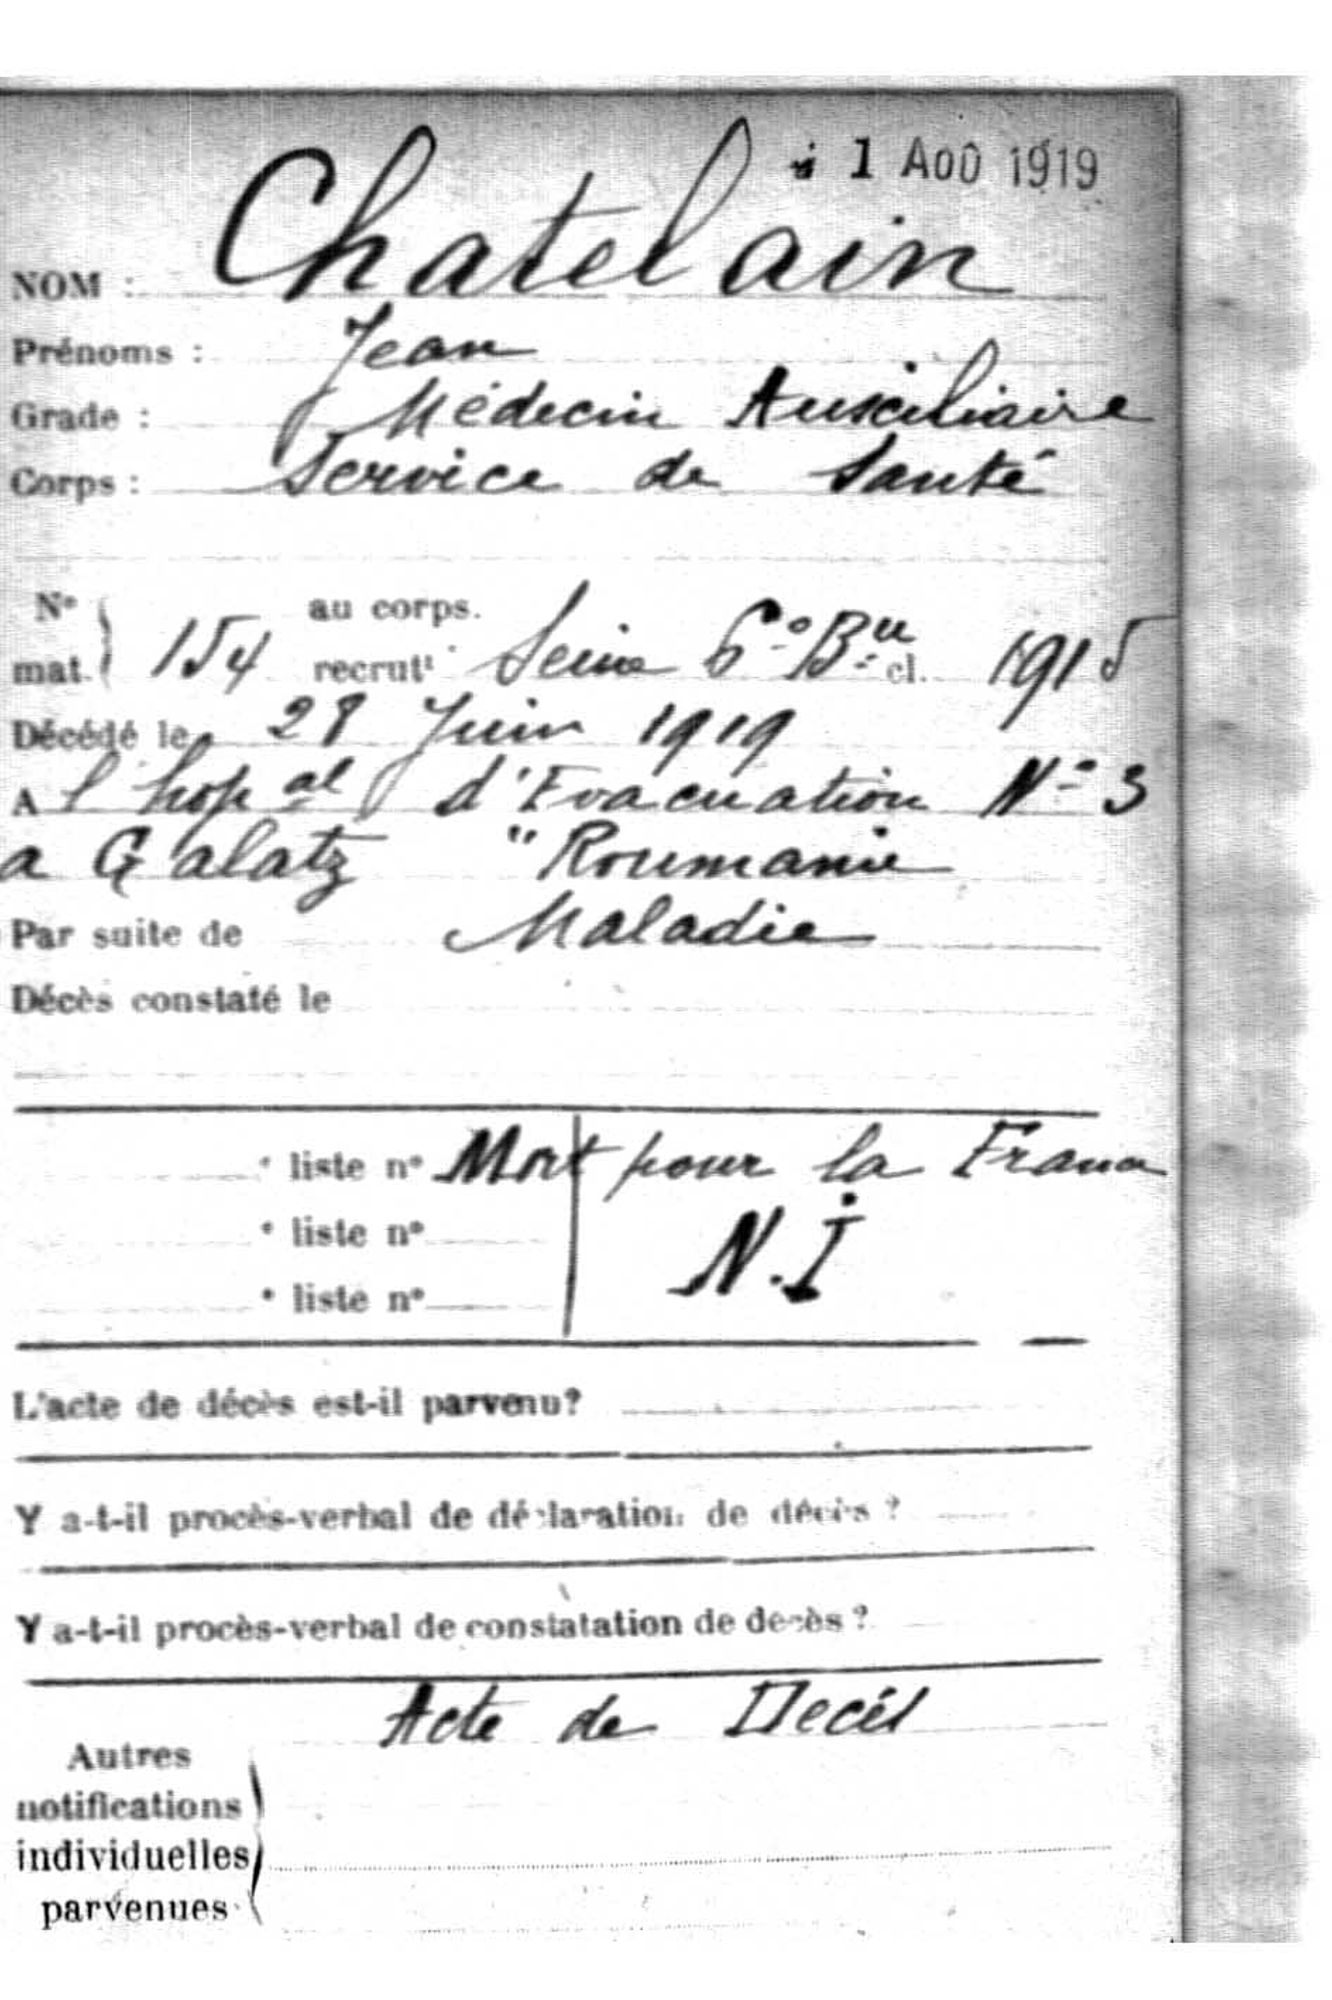 1 AOÛ 1919
NOM : Chatelain
Prénoms : Jean
Grade : Médecin Auxiliaire
Corps : Service de Santé
N° au corps.
mat. 154 recrutt Seine 6° Bau cl. 1915
Décédé le 28 Juin 1919
A l'hopal d'Evacuation N° 3
a Galatz "Roumanie
Par suite de Maladie
Décès constaté le
liste n° Mort pour la France
liste n° N.I
liste n°
L'acte de décès est-il parvenu?
Y a-t-il procès-verbal de déclaration de décès ?
Y a-t-il procès-verbal de constatation de decès ?
Acte de Decés
Autres
notifications
individuelles
parvenues